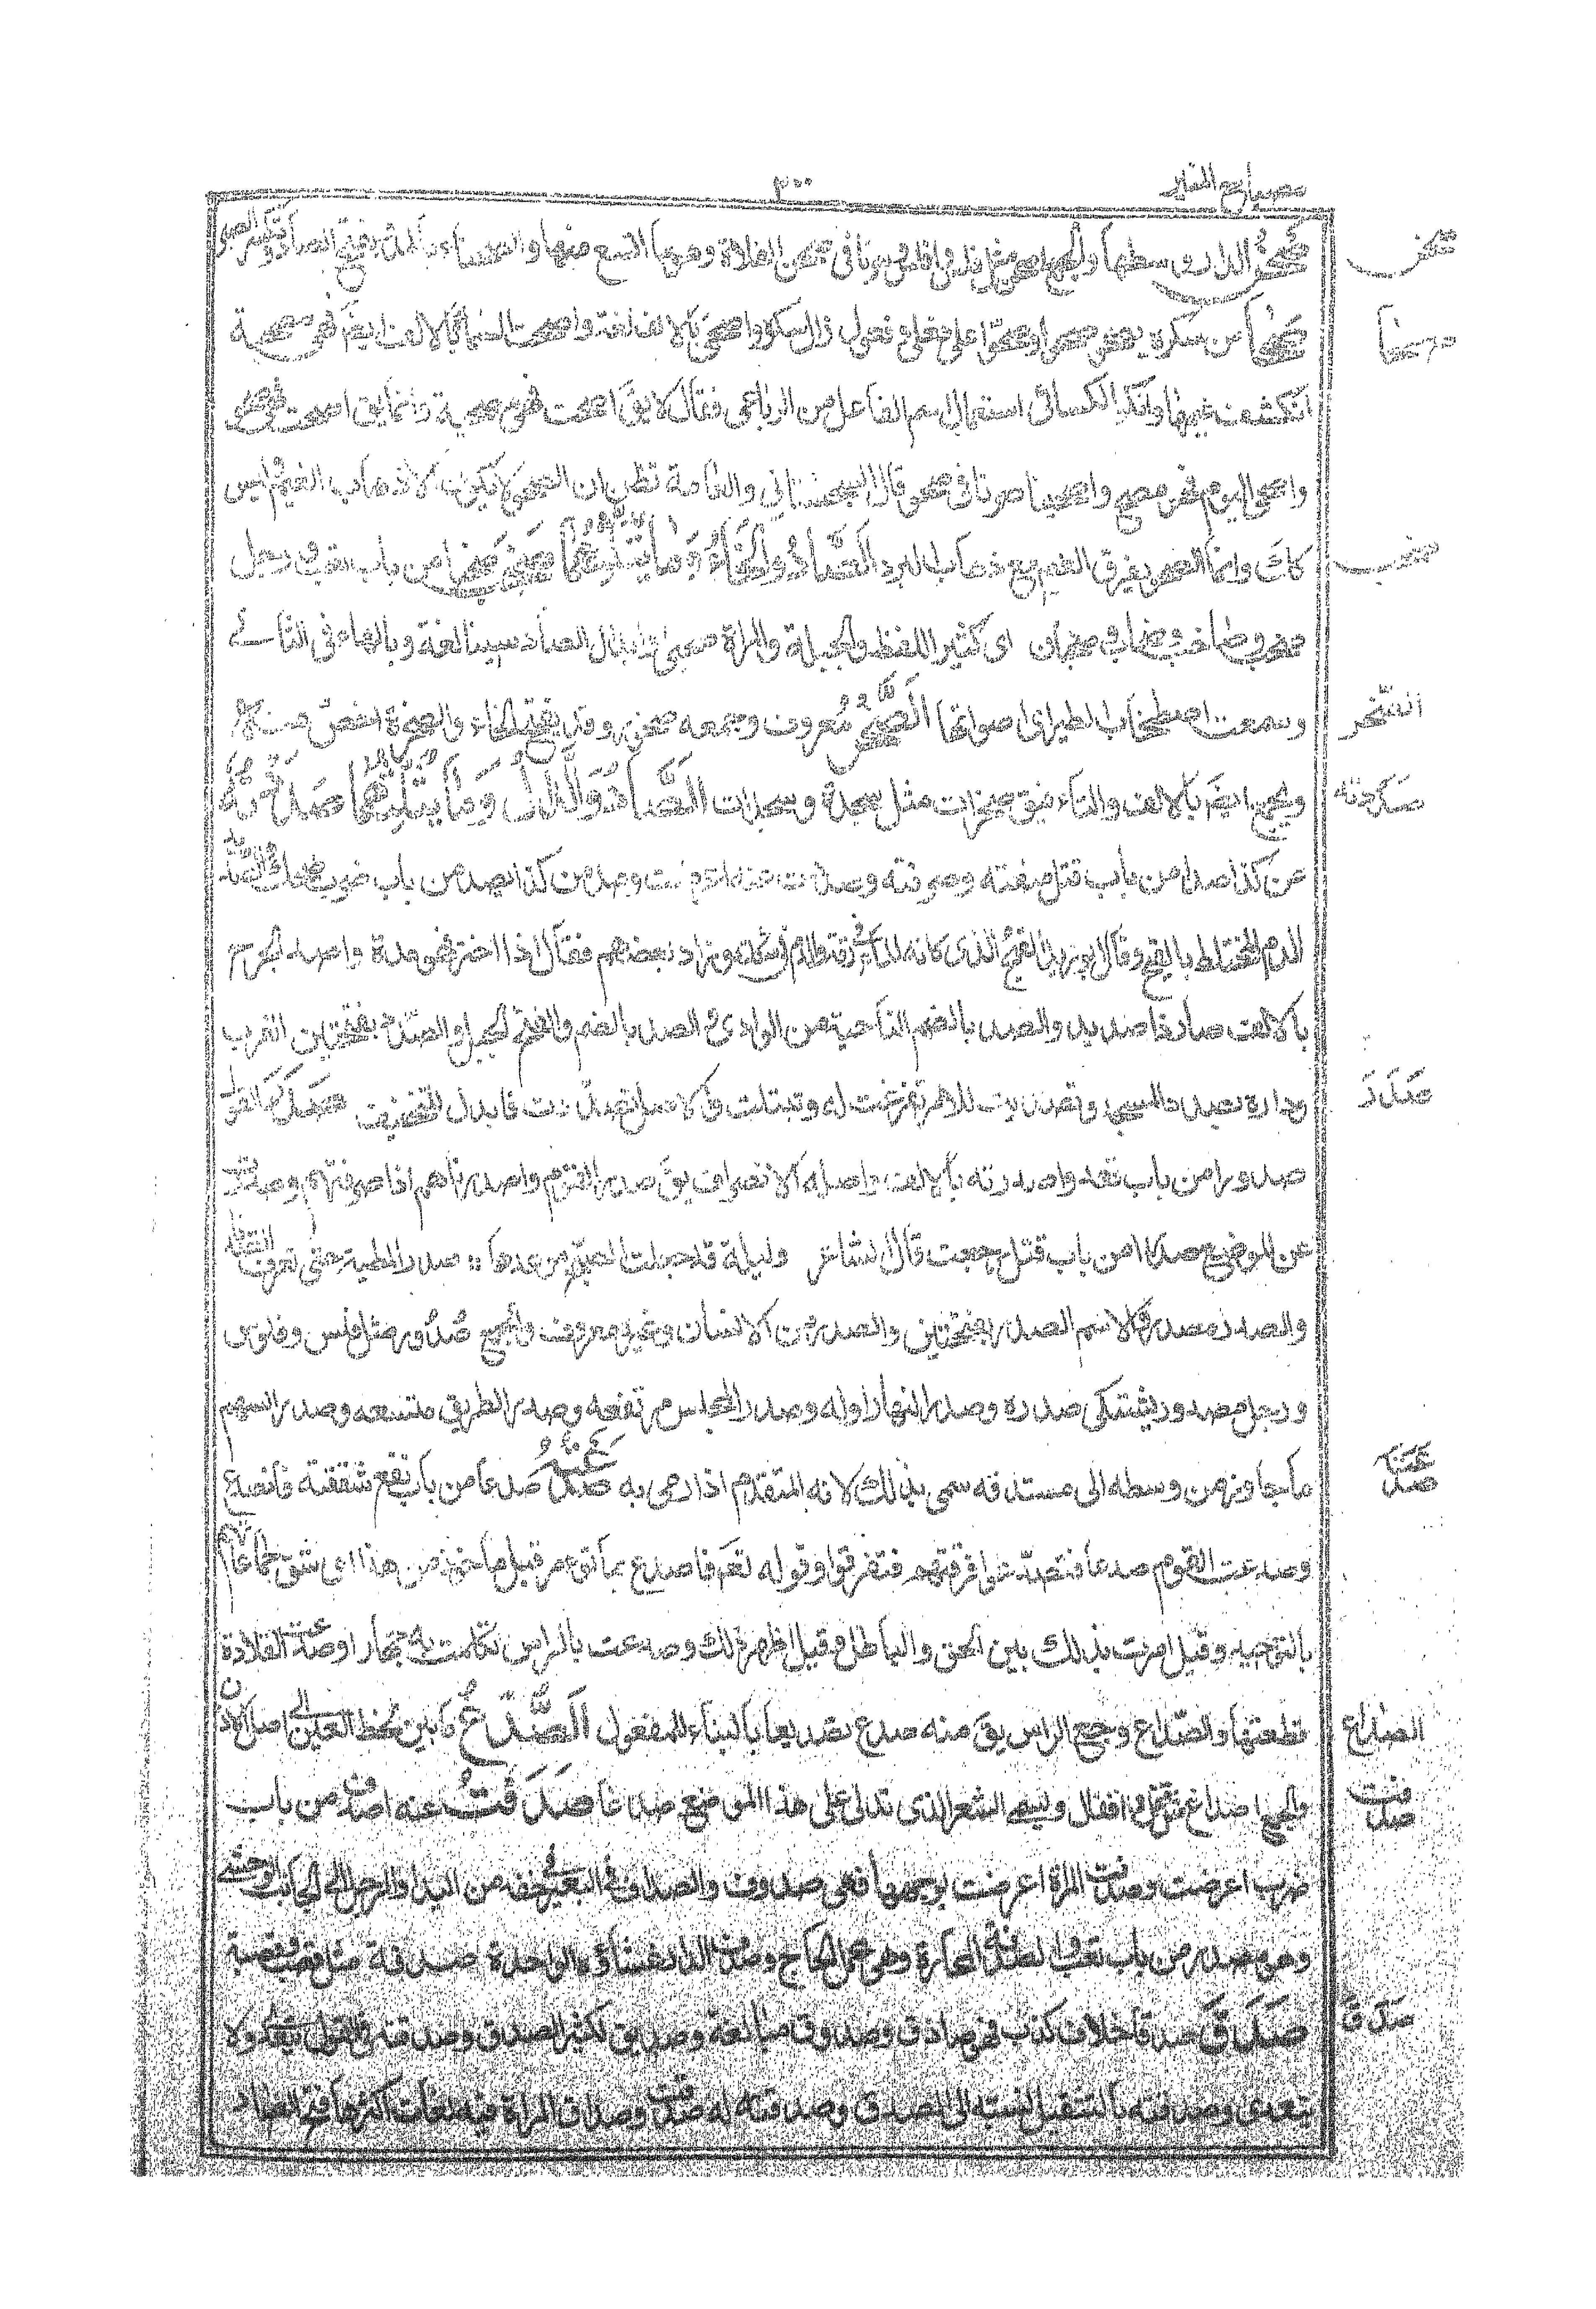 مصباح المنير
٣٠٠
صحن الدار وسطها والجمع اصحن مثل فلس وافلس وسرنا فى صحن الفلاة وهو ما اتسع منها والصحناء بالمد بفتح الصاد وتكسر الصير
صحا من سكره يصحو صحوا وصحوّا على فعل وفعول زال سكره واصحى بالالف لغة واصحت السماء بالالف ايضَ فهى مصحية
انكشف غيمها وانكر الكسائى استعمال اسم الفاعل من الرباعى فقال لا يقَ اصحت فهى مصحية وانما يق اصحت فهى صحو
واصحى اليوم فهو مصح واصحينا صرنا فى صحو قال السجستانى والعامة تظن ان الصحو لا يكون الا ذهاب الغيم وليس
كذلك وانما الصحو تفرق الغيم مع ذهاب البرد الصاد والخاء وما يثلثهما صخب صخبا من باب تعب رجل
صخب وصاخب وصخاب وصخبان اى كثير اللغط والجلبة والمراة صخبى وابدال الصاد سينا لغة وبالهاء فى الثانى
وسمعت اصطخاب الطير اى اصواتها الصخر معروف وجمعه صخور وقد يفتح الخاء والصخرة اخص منه
ويجمع ايضَ بالالف والتاء فيق صخرات مثل سجدة وسجدات الصاد والدال وما يثلثهما صددته
عن كذا صدا من باب قتل منعته وصرفته وصددت عنه اعرضت وصد من كذا يصد من باب ضرب ضحك والصديد
الدم المختلط بالقيح وقال ابو زيد القيح الذى كانه الماء رقة والدم فى شكله وزاد بعضهم فقال اذا اخثر فهو مدة واصد الجرح
بالالف صار ذا صديد والصد بالضم الناحية من الوادى والصد بالضم والفتح الجبل والصدد بفتحتين القرب
وداره بصدد المسجد وتصديت للامر تفرغت له وتبتلت والاصل تصددت فابدل للتخفيف صدر القول
صدورا من باب قعد واصدرته بالالف واصله الانصراف يقَ صدر القوم واصدرناهم اذا صرفتهم وصدرت
عن الموضع صدرا من باب قتل رجعت قال الشاعر وليلة قد جعلت الصبح موعدها :: صدر المطية حتى تعرف السدفا
والصدر مصدر والاسم الصدر بفتحتين والصدر من الانسان وغيره معروف والجمع صُدُور مثل فلس وفلوس
ورجل مصدور يشتكى صدره وصدر النهار اوله وصدر المجلس مرتفعه وصدر الطريق متسعه وصدر السهم
ما جاوز من وسطه الى مستدقه سمى بذلك لانه المتقدم اذا رمى به صدعته صدعا من باب نفع شققته فانصدع
وصدعت القوم صدعا فتصدّعوا فرقتهم فتفرقوا وقوله تعَ فاصدع بما تؤمر قيل ماخوذ من هذا اى شق جماعاتهم
بالتوحيد وقيل افرق بذلك بين الحق والباطل وقيل اظهر ذلك وصدعت بالراس تكلمت به جهارا وصدعت الفلاة
قطعتها والصّداع وجع الراس يقَ منه صدع تصديعا بالبناء للمفعول الصُّدغ ما بين لحظ العين الى اصل الاذن
والجمع اصداغ مثل قفل واقفال ويسمى الشعر الذى تدلى على هذا الموضع صدغا صَدَفْتُ عنه اصدف من باب
ضرب اعرضت وصدفت المراة اعرضت بوجهها فهى صدوف والصدف فى البعير ميل فى خفه من اليد او الرجل الى الجانب الوحشى
وهو مصدر من باب تعب والصدفة المحارة وهى محمل الحاج وصدف الدر غشاؤه الواحدة صدفة مثل قصب وقصبة
صَدَقَ صدقا خلاف كذب فهو صادق وصدوق مبالغة وصديق لكثير الصدق وصدقته فى القول يتعدى ولا
يتعدى وصدقته بالتثقيل نسبته الى الصدق وصدقته له صدقت وصداق المراة فيه لغات اكثرها فتح الصاد
صحن
صحا
صخب
الصخر
صددته
صدر
صدعته
الصداع
صدفت
صدق